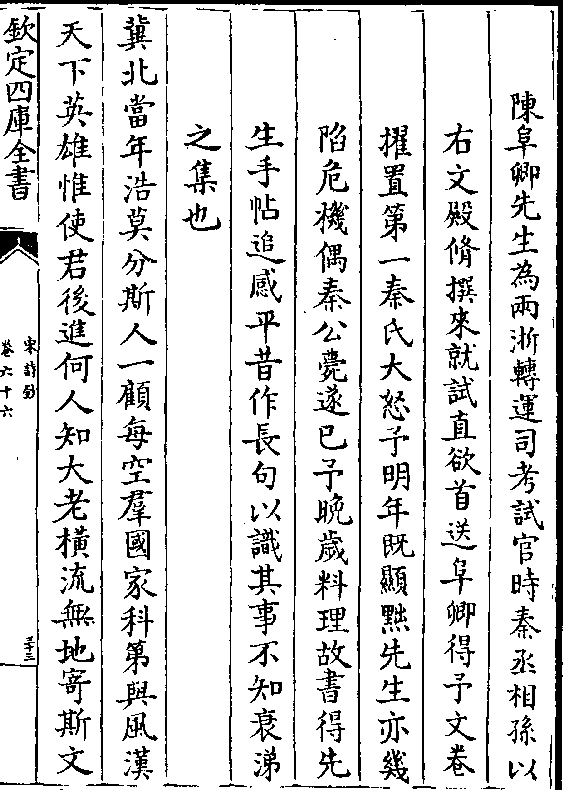 陳阜卿先生為兩浙轉運司考試官時秦丞相孫以
右文殿脩撰來就試直欲首送阜卿得予文卷
擢置第一秦氏大怒予明年既顯黜先生亦幾
陷危機偶秦公薨遂已予晚歲料理故書得先
生手帖追感平昔作長句以識其事不知衰涕
之集也
冀北當年浩莫分斯人一顧每空羣國家科第與風漢
天下英雄惟使君後進何人知大老橫流無地寄斯文
欽定四庫全書
宋詩鈔
卷六十六
三十三